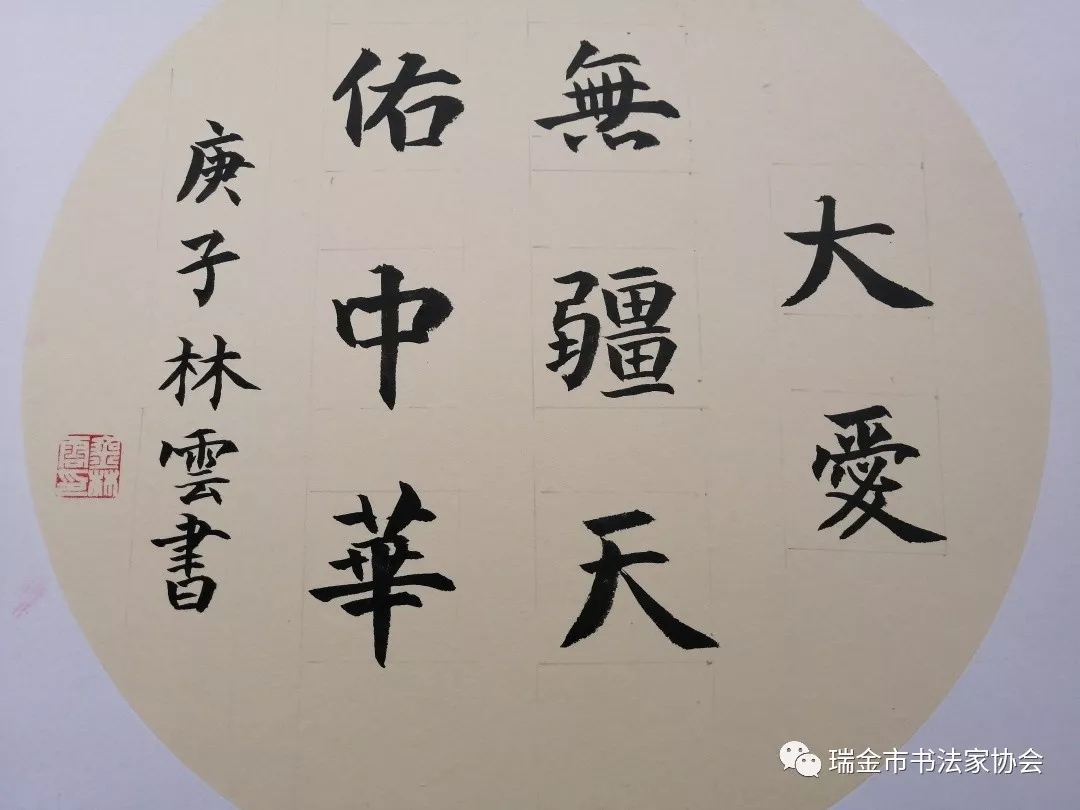 大愛
無疆天
佑中華
庚子林雲書
瑞金市书法家协会